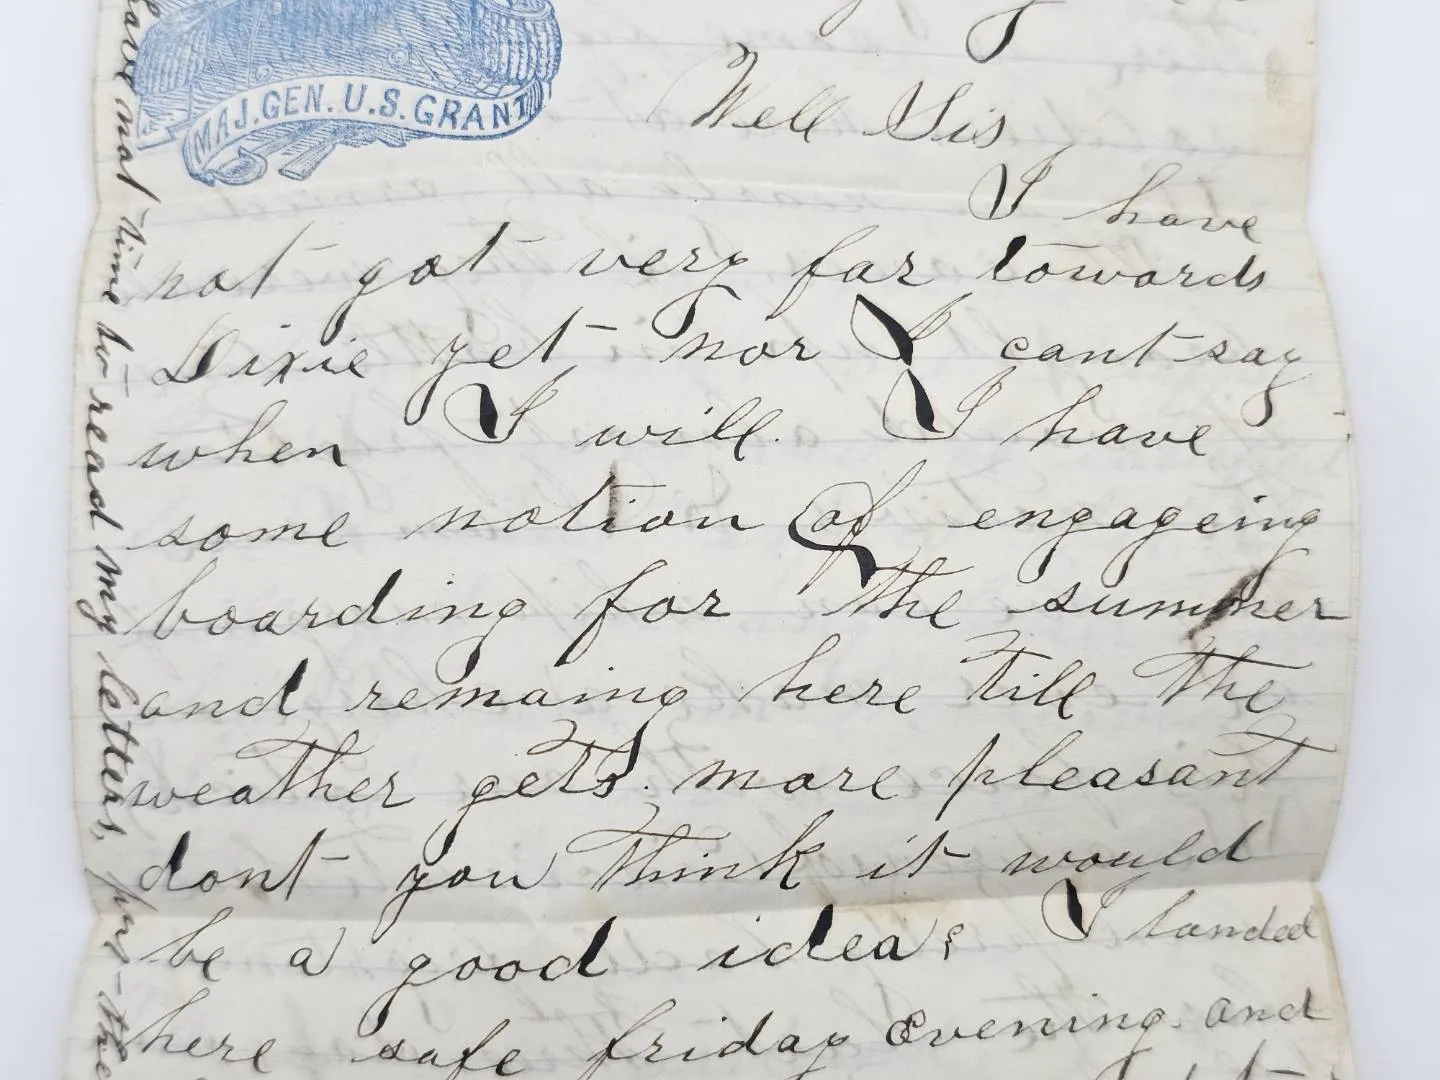 MAJ. GEN. U.S. GRANT
Well Sis
I have
not got very far towards
Dixie yet nor I cant say
when I will. I have
some notion of engageing
boarding for the summer
and remaing here till the
weather gets more pleasant
dont you think it would
be a good idea? I landed
here safe friday Evening. and
have not time to read my letters,